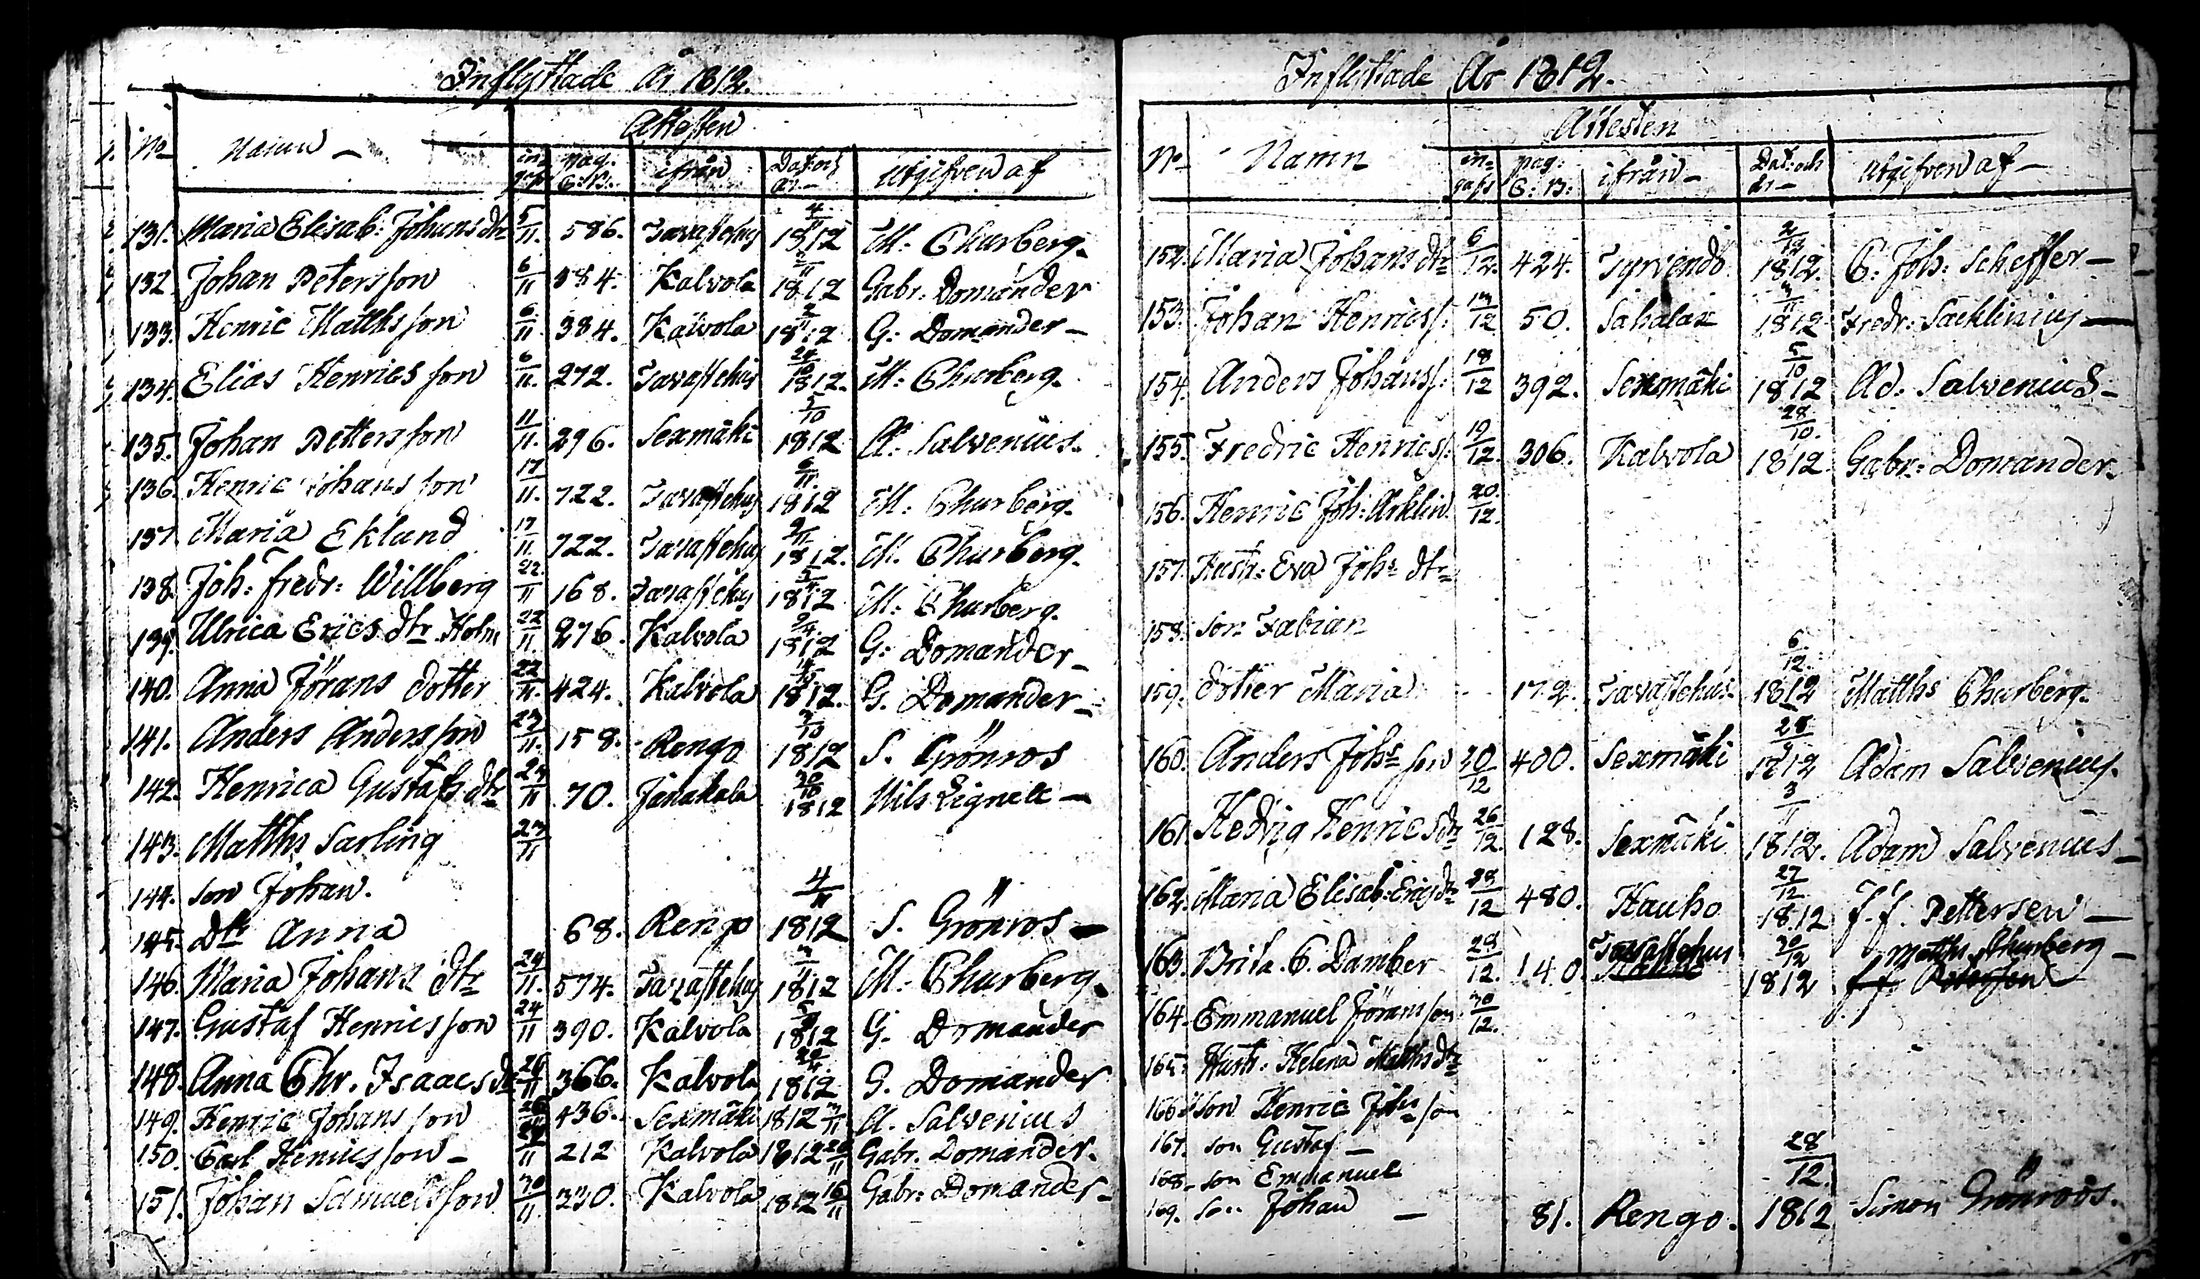 Inflyttade År 1812.
Attesten
No Namn – ingifs pag: C:B: ifrån Dat: och år – Utgifven af
131. Maria Elisab: Johans dtr 5/11. 586. Tavastehus 4/11 1812 M: Churberg.
132. Johan Petersson 6/11 384. Kalvola 1812 Gabr: Domander
133. Henric Matthsson 6/11. 384. Kalvola 1812 G: Domander –
134. Elias Henricsson 6/11. 272. Tavastehus 24/10 1812. M: Churberg.
135. Johan Pettersson 11/11. 296. Sexmäki 5/10 1812 A: Salvenius.
136. Henric Johansson 17/11. 722. Tavastehus 6/11 1812 M: Churberg.
137 Maria Eklund 17/11. 722. Tavastehus 1812. M. Churberg.
138. Joh: Fredr: Willberg 22/11 168. Tavastehus 1812 M: Churberg.
139. Ulrica Erics dtr Holm 22/11 276. Kalvola 1812 G: Domander –
140. Anna Jörans dotter 22/11. 424. Kalvola 1812. G. Domander –
141. Anders Andersson 23/11. 158. Rengo 3/10 1812 S. Grönros
142. Henrica Gustafs dtr 23/11 70. Janakala 30/10 1812 Nils Lignell –
143. Matths Sarling 23/11
144. son Johan.
145. Dtr Anna 68. Rengo 4/11 1812 S. Grönros –
146. Maria Johans dtr 24/11. 574. Tavastehus 1812 M: Churberg.
147. Gustaf Henricsson 24/11 390. Kalvola 1812 G. Domander
148. Anna Chr. Isaacs dtr 26/11 366. Kalvola 1812 G. Domander
149. Henric Johansson 436. Sexmäki 1812 A. Salvenius
150. Carl Henricsson – 212 Kalvola 1812 Gabr. Domander.
151. Johan Samuelsson 30/11. 330. Kalvola 1812 16/11 Gabr: Domander –
Inflyttade År 1812.
Attesten
No Namn ingifs pag: C: B: ifrån – Dat: och år – Utgifven af –
152. Maria Johans dtr 6/12. 424. Tyrvendö 2/12 1812. C: Joh: Scheffer –
153. Johan Henricss: 13/12 50. Sahalax 1812 Fredr: Sacklinius –
154. Anders Johanss: 18/12 392. Sexmäki 5/10 1812 Ad: Salvenius –
155. Fredric Henricss: 19/12. 306. Kalvola 28/10. 1812 Gabr: Domander.
156. Henric Joh: Arklin 20/12.
157. Hustr: Eva Johs dtr
158. son Fabian
159. dotter Maria 172. Tavastehus 6/12. 1812 Matths Churberg.
160. Anders Johs son 20/12 400. Sexmäki 1812 Adam Salvenius.
161. Hedvig Henricsdtr 26/12. 128. Sexmäki 1812. Adam Salvenius –
162. Maria Elisab: Ericsdtr 28/12 480. Hauho 27/12 1812 f.f. Pettersen –
163. Brita. C. Damber 29/12. 140. Tavastehus 30/12 1812 Matths Churberg –
164. Emmanuel Jöransson 30/12.
165. Hustr: Helena Matthsdtr
166. son Henric Johs son
167. son Gustaf –
168. son Emmanuel
169. son Johan – 81. Rengo. 28/12. 1812 Simon Grönroos.